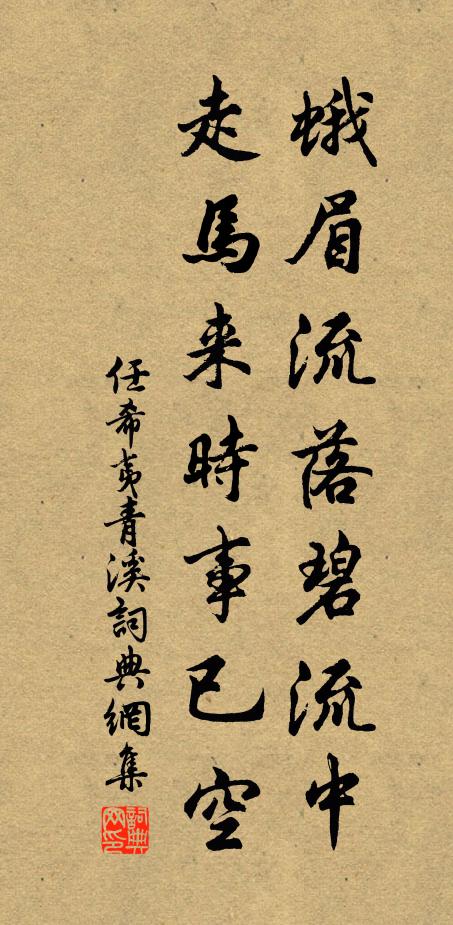 蛾眉流落碧流中
走馬来時事已空
任希夷青溪詞典網集
詞典网印